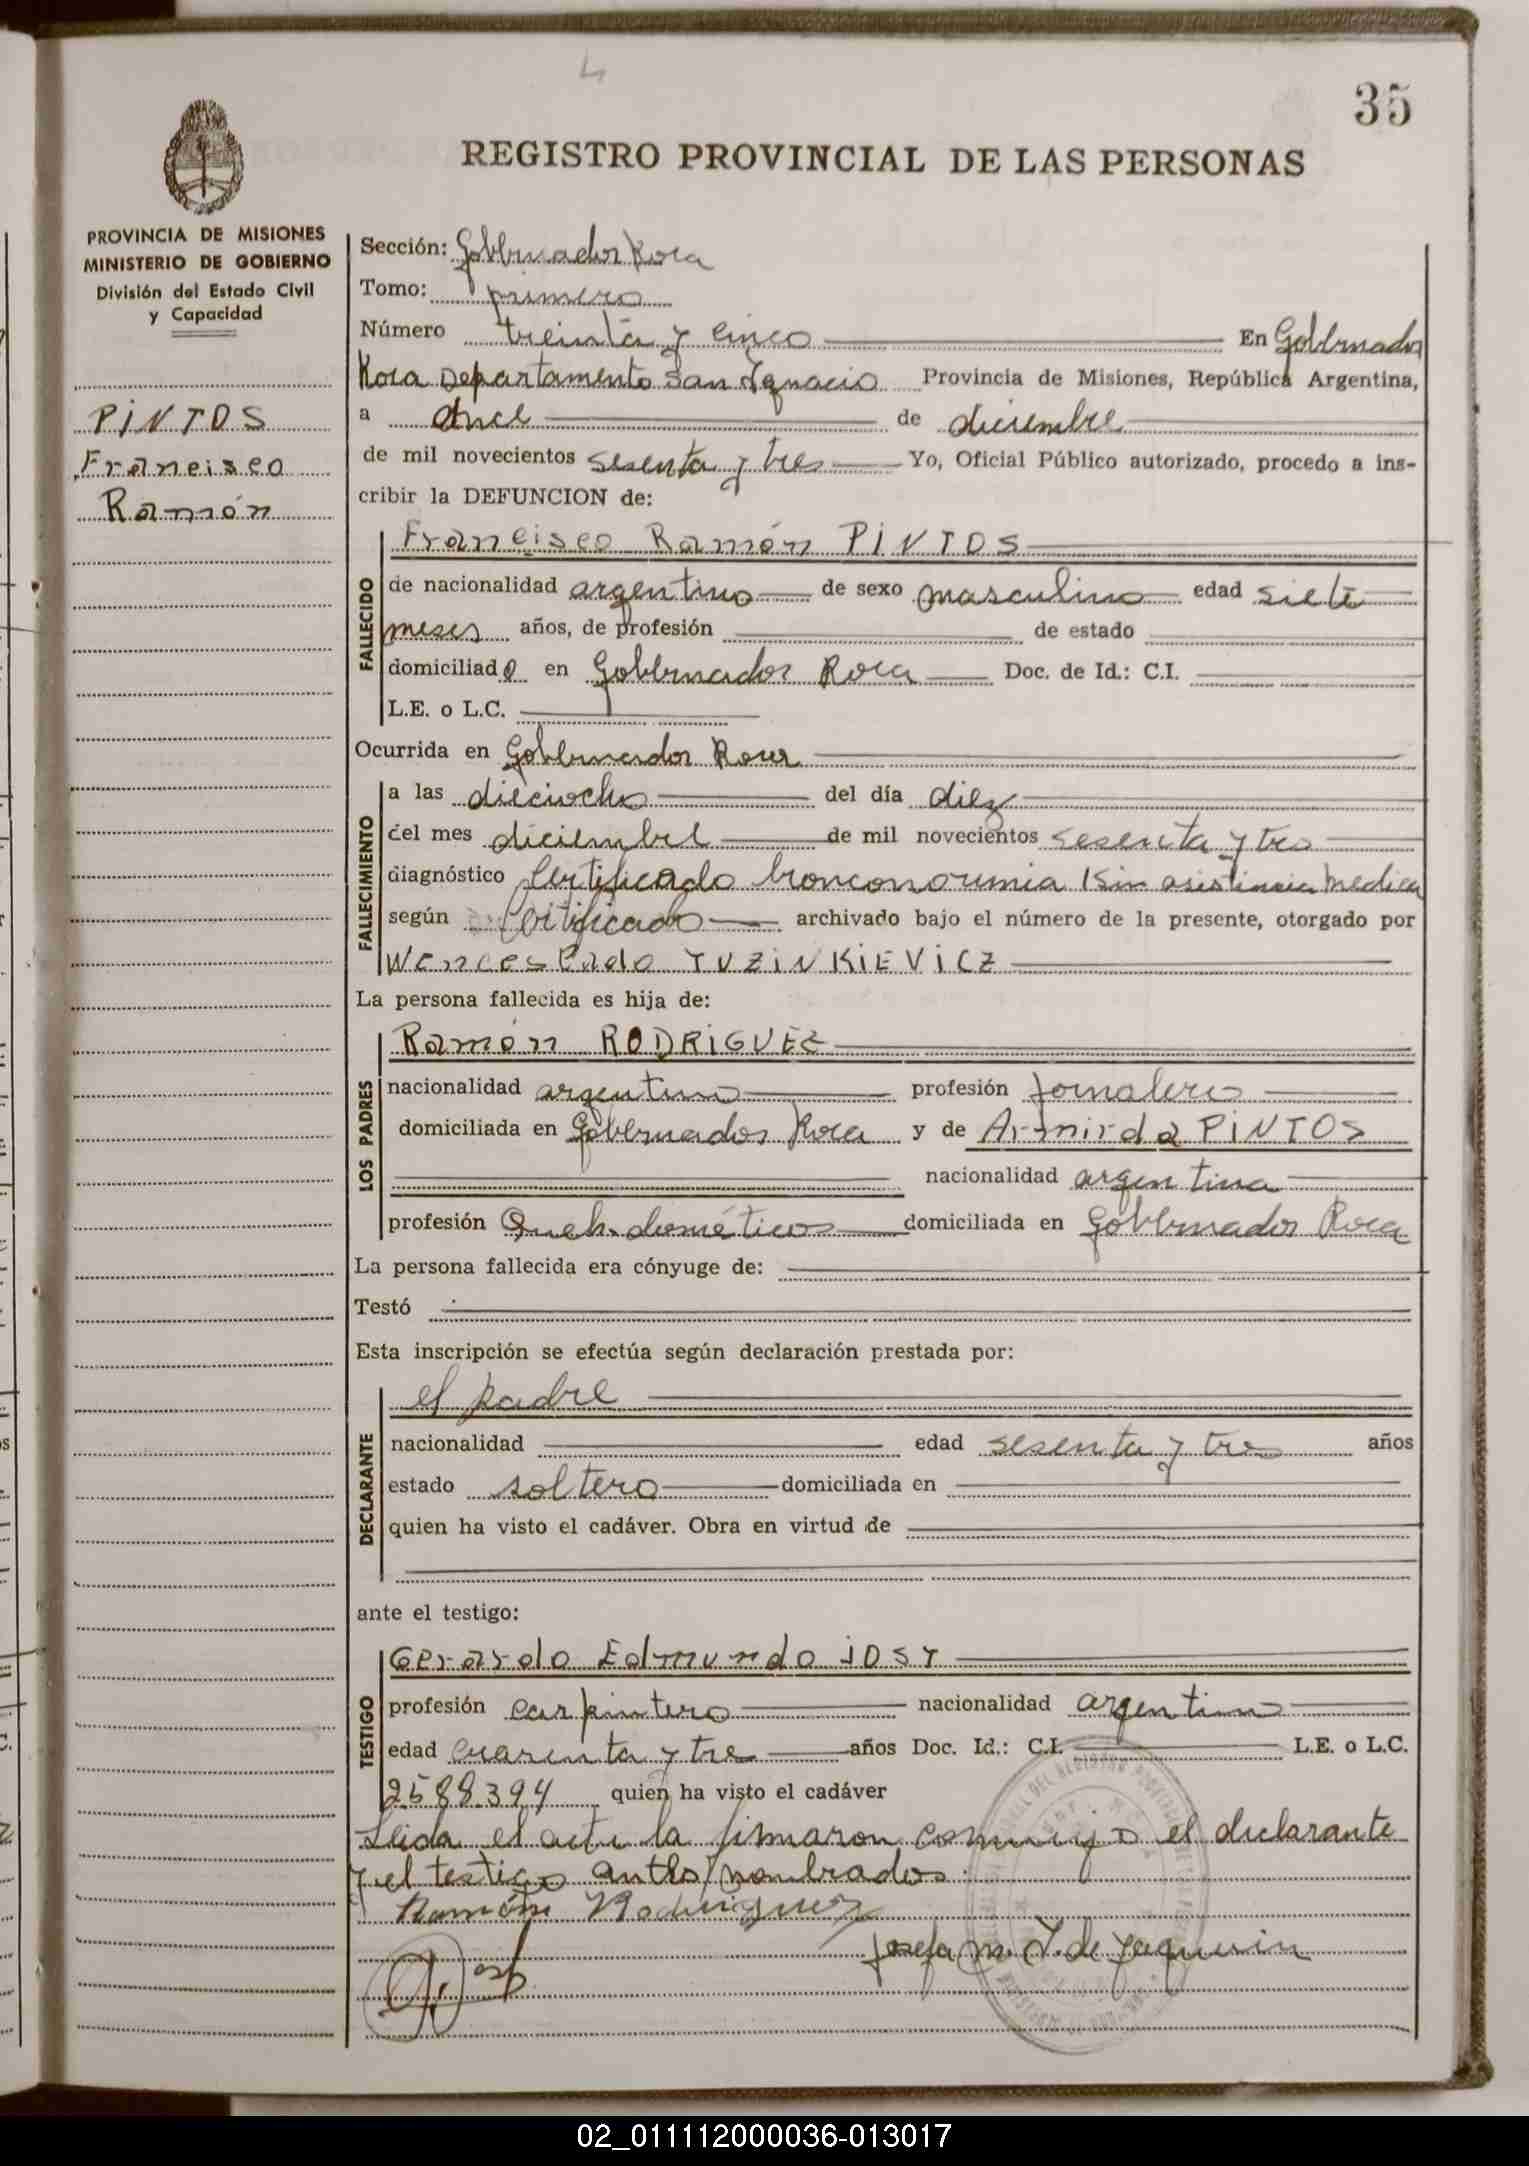 35
REGISTRO PROVINCIAL DE LAS PERSONAS
PROVINCIA DE MISIONES
MINISTERIO DE GOBIERNO
División del Estado Civil
y Capacidad
PINTOS
Francisco
Ramón
Sección: Gobernador Roca
Tomo: primero
Número treinta y cinco En Gobernador
Roca Departamento San Ignacio Provincia de Misiones, República Argentina,
a once de diciembre
de mil novecientos sesenta y tres Yo, Oficial Público autorizado, procedo a ins-
cribir la DEFUNCION de:
Francisco Ramón PINTOS
FALLECIDO
de nacionalidad argentino de sexo masculino edad siete
meses años, de profesión de estado
domiciliado en Gobernador Roca Doc. de Id.: C.I.
L.E. o L.C.
Ocurrida en Gobernador Roca
FALLECIMIENTO
a las dieciocho del día diez
del mes diciembre de mil novecientos sesenta y tres
diagnóstico Certificado bronconoumia sin asistencia medica
según Certificado archivado bajo el número de la presente, otorgado por
Wenceslado YUZINKIEVICZ
La persona fallecida es hija de:
LOS PADRES
Ramón RODRIGUEZ
nacionalidad argentino profesión jornalero
domiciliada en Gobernador Roca y de Armirda PINTOS
nacionalidad argentina
profesión Queh. dométicos domiciliada en Gobernador Roca
La persona fallecida era cónyuge de:
Testó
Esta inscripción se efectúa según declaración prestada por:
DECLARANTE
el padre
nacionalidad edad sesenta y tres años
estado soltero domiciliada en
quien ha visto el cadáver. Obra en virtud de
ante el testigo:
TESTIGO
Gerardo Edmundo JOST
profesión carpintero nacionalidad argentino
edad cuarenta y tre años Doc. Id.: C.I. L.E. o L.C.
2588394 quien ha visto el cadáver
Leida el acta la firmaron conmigo el declarante
y el testigo antes nombrados.
Ramón Rodriguez
Josefa M. de
Jost
02_011112000036-013017